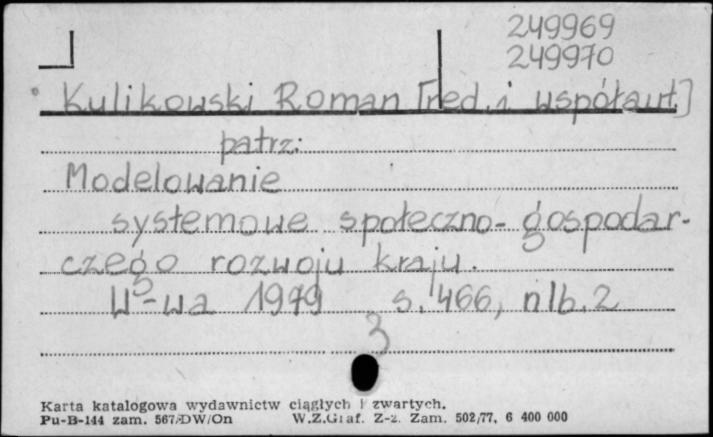 249969
249970
Kulikowski Roman [red. i współaut.]
patrz:
Modelowanie
systemowe społeczno-gospodar-
czego rozwoju kraju.
W-wa 1979 s. 466, nlb. 2
3
Karta katalogowa wydawnictw ciągłych i zwartych.
Pu-B-144 zam. 567/DW/On W.Z.Graf. Z-z. Zam. 502/77, 6 400 000